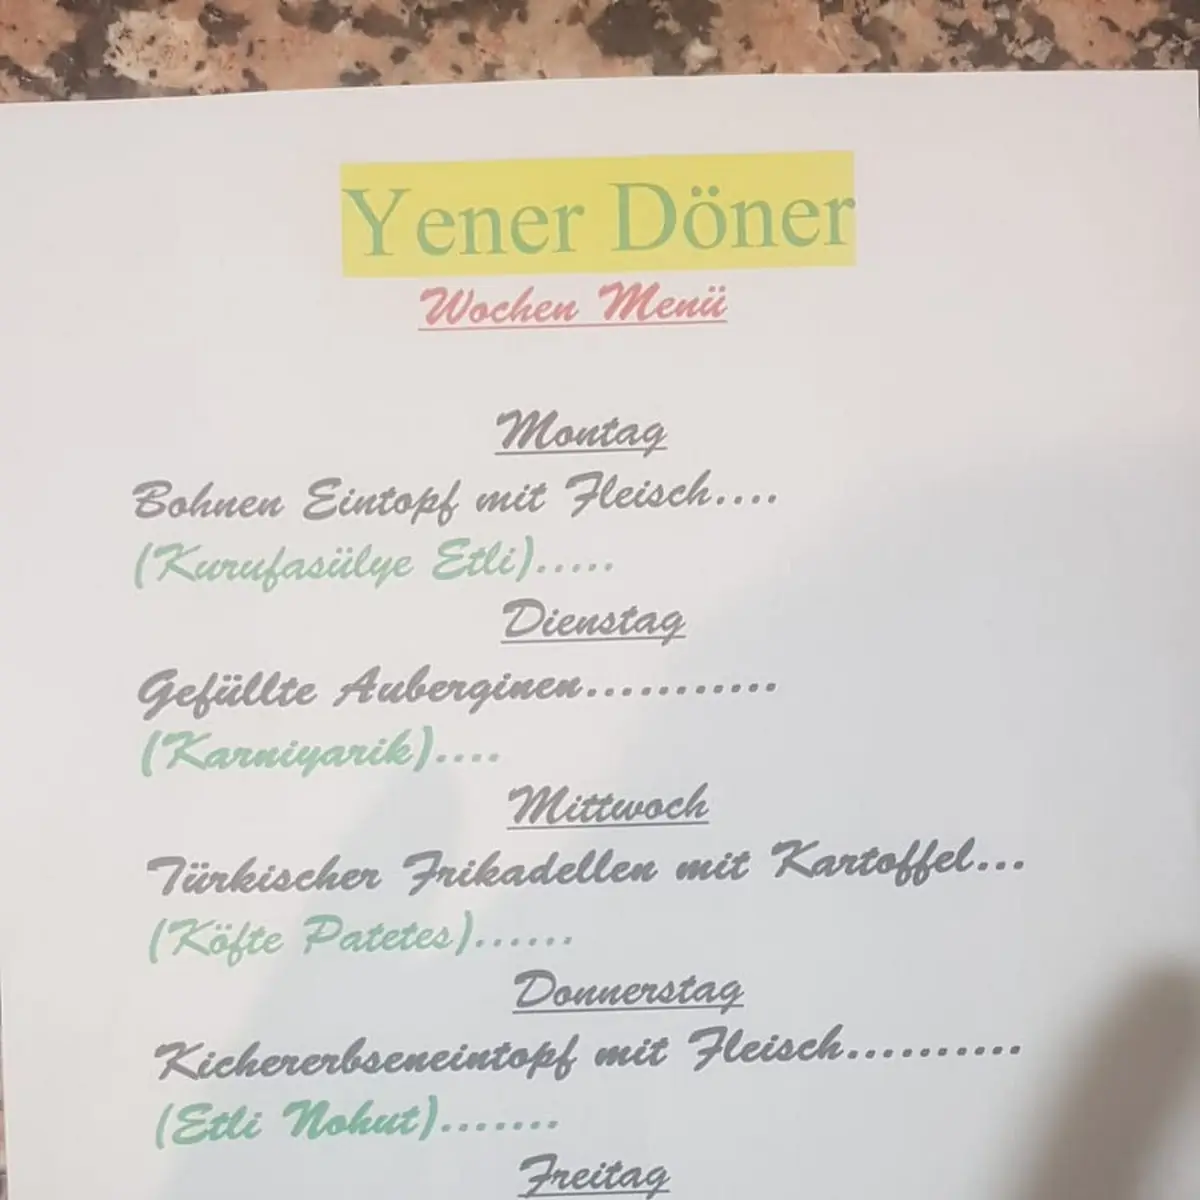 Yener Döner
Wochen Menü
Montag
Bohnen Eintopf mit Fleisch....
(Kurufasülye Etli).....
Dienstag
Gefüllte Auberginen...........
(Karniyarik)....
Mittwoch
Türkischer Frikadellen mit Kartoffel...
(Köfte Patetes)......
Donnerstag
Kichererbseneintopf mit Fleisch..........
(Etli Nohut).......
Freitag